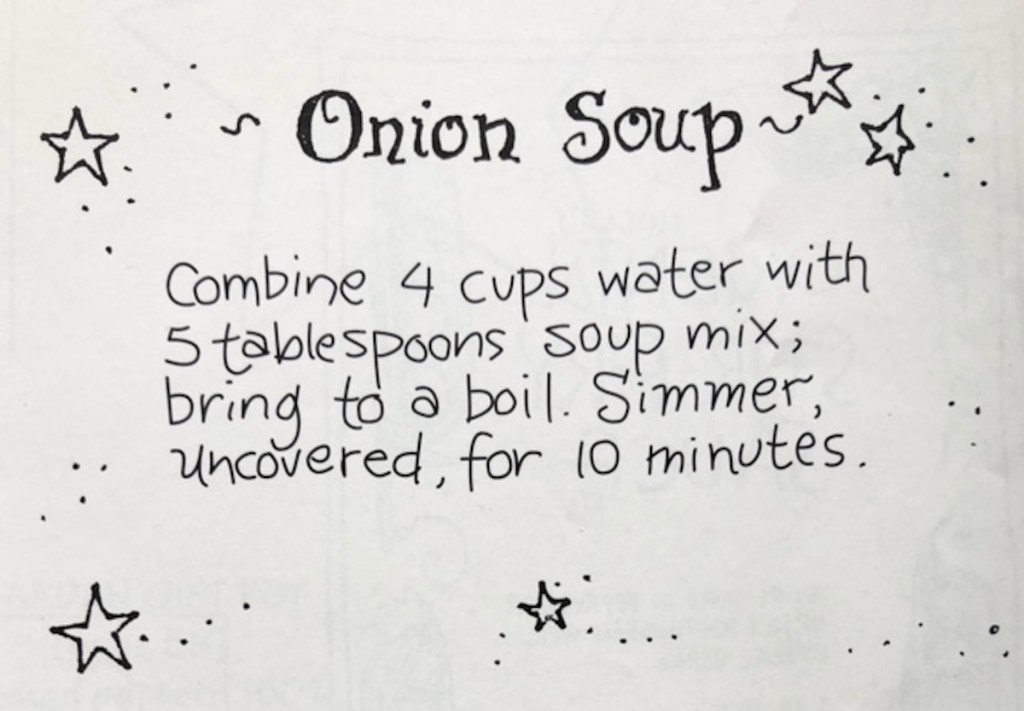 ~ Onion Soup ~
Combine 4 cups water with
5 tablespoons soup mix;
bring to a boil. Simmer,
uncovered, for 10 minutes.